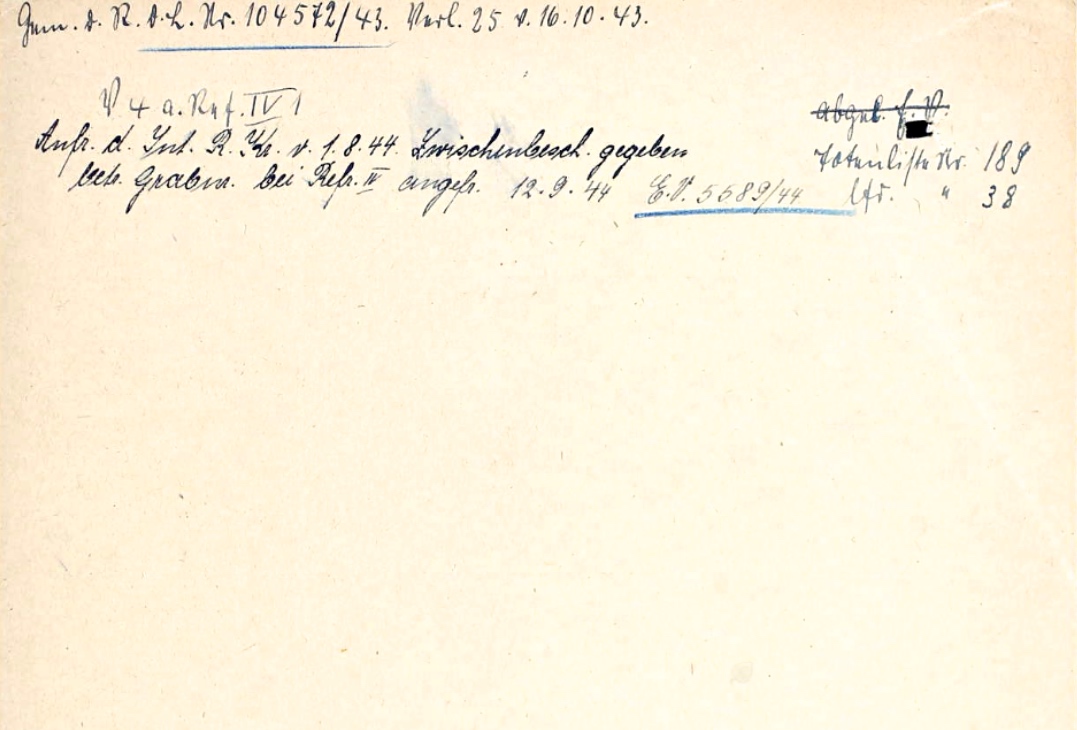 Gem. d. R.d.L. Nr. 104572/43. Verl. 25 v. 16.10.43.
V 4 a. Ref. IV 1
abgel.
Anfr. d. Int. R. Kr. v. 1.8.44. Zwischenbesch. gegeben
Totenliste Nr. 189
betr. Grabm. bei Refr. IV angefr. 12.9.44 E.V. 5589/44
lfd. " 38